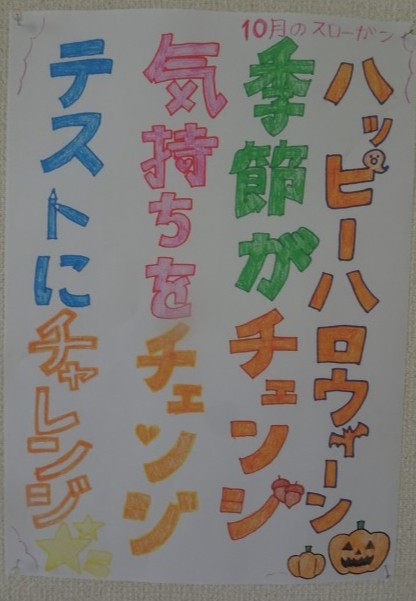 10月のスローガン
ハッピーハロウィーン
季節がチェンジ
気持ちをチェンジ
テストにチャレンジ